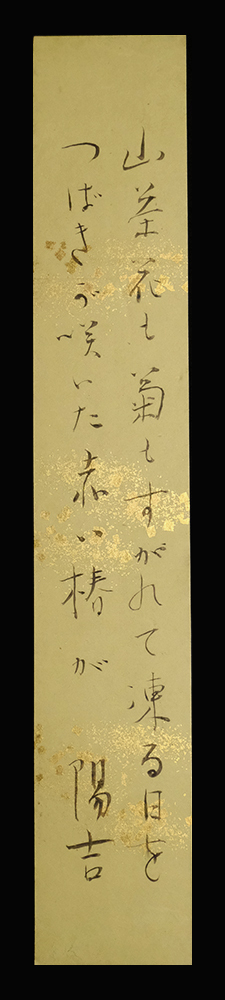 山茶花も菊もすがれて凍る日を
つばきが咲いた赤い椿が 陽吉